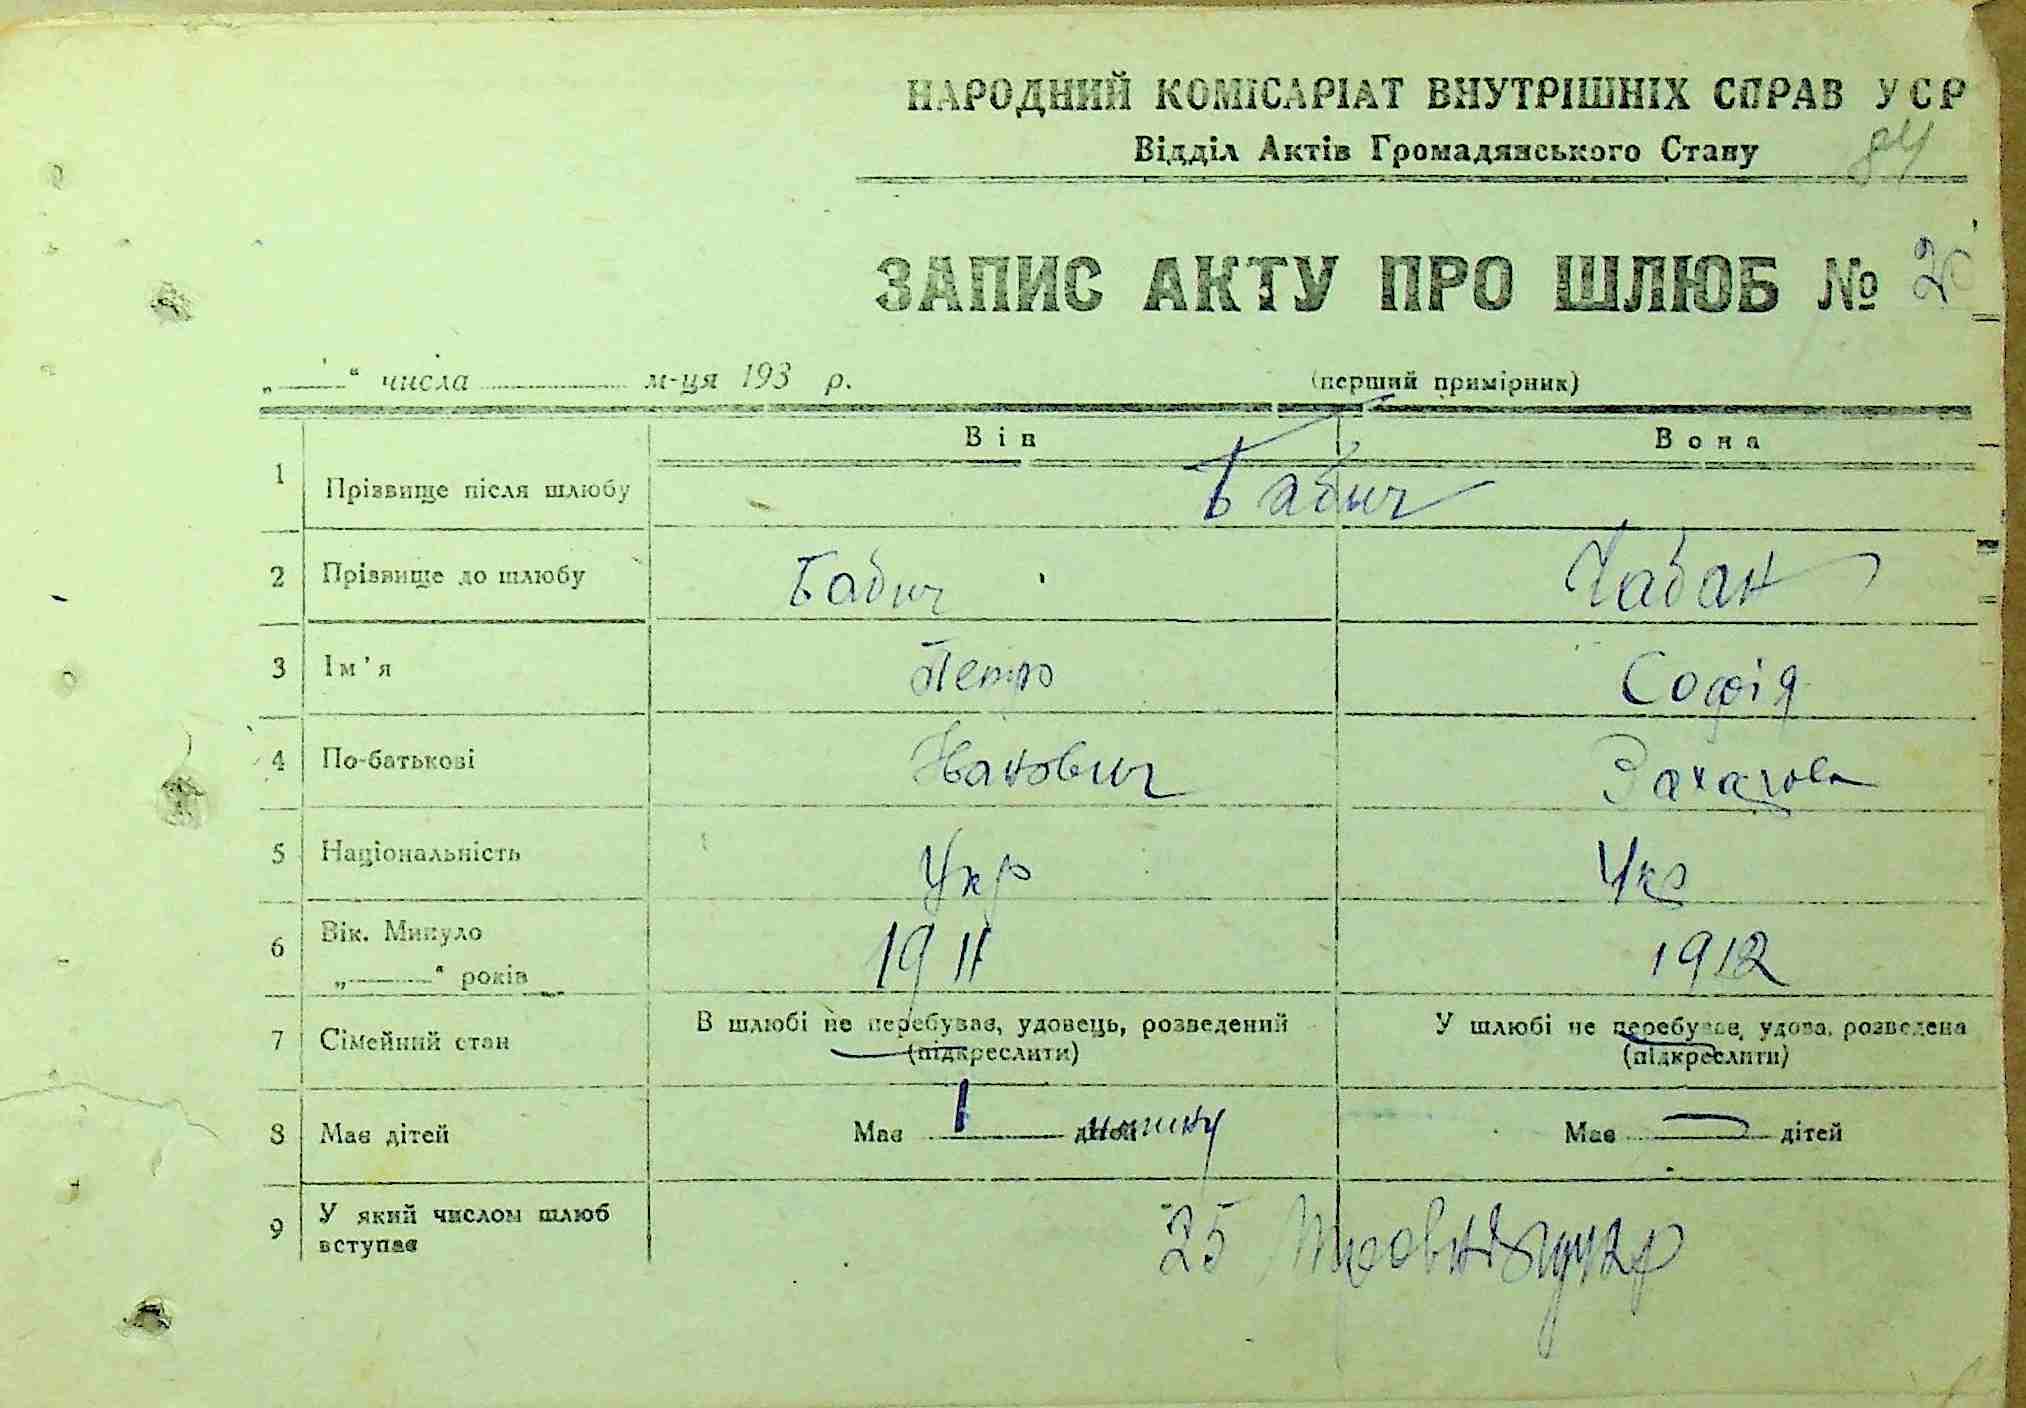 НАРОДНИЙ КОМІСАРІАТ ВНУТРІШНІХ СПРАВ УСР
Відділ Актів Громадянського Стану
84
ЗАПИС АКТУ ПРО ШЛЮБ №
„ “ числа м-ця 193 р. (перший примірник)
Він Вона
1 Прізвище після шлюбу Бабич
2 Прізвище до шлюбу Бабич Чабан
3 Ім'я Петро Софія
4 По-батькові Захарова
5 Національність Укр Укр
6 Вік. Минуло „ “ років 1911 1912
7 Сімейний стан В шлюбі не перебуває, удовець, розведений (підкреслити) У шлюбі не перебуває, удова, розведена (підкреслити)
8 Має дітей Має 1 дітей Має — дітей
9 У який числом шлюб вступає 25